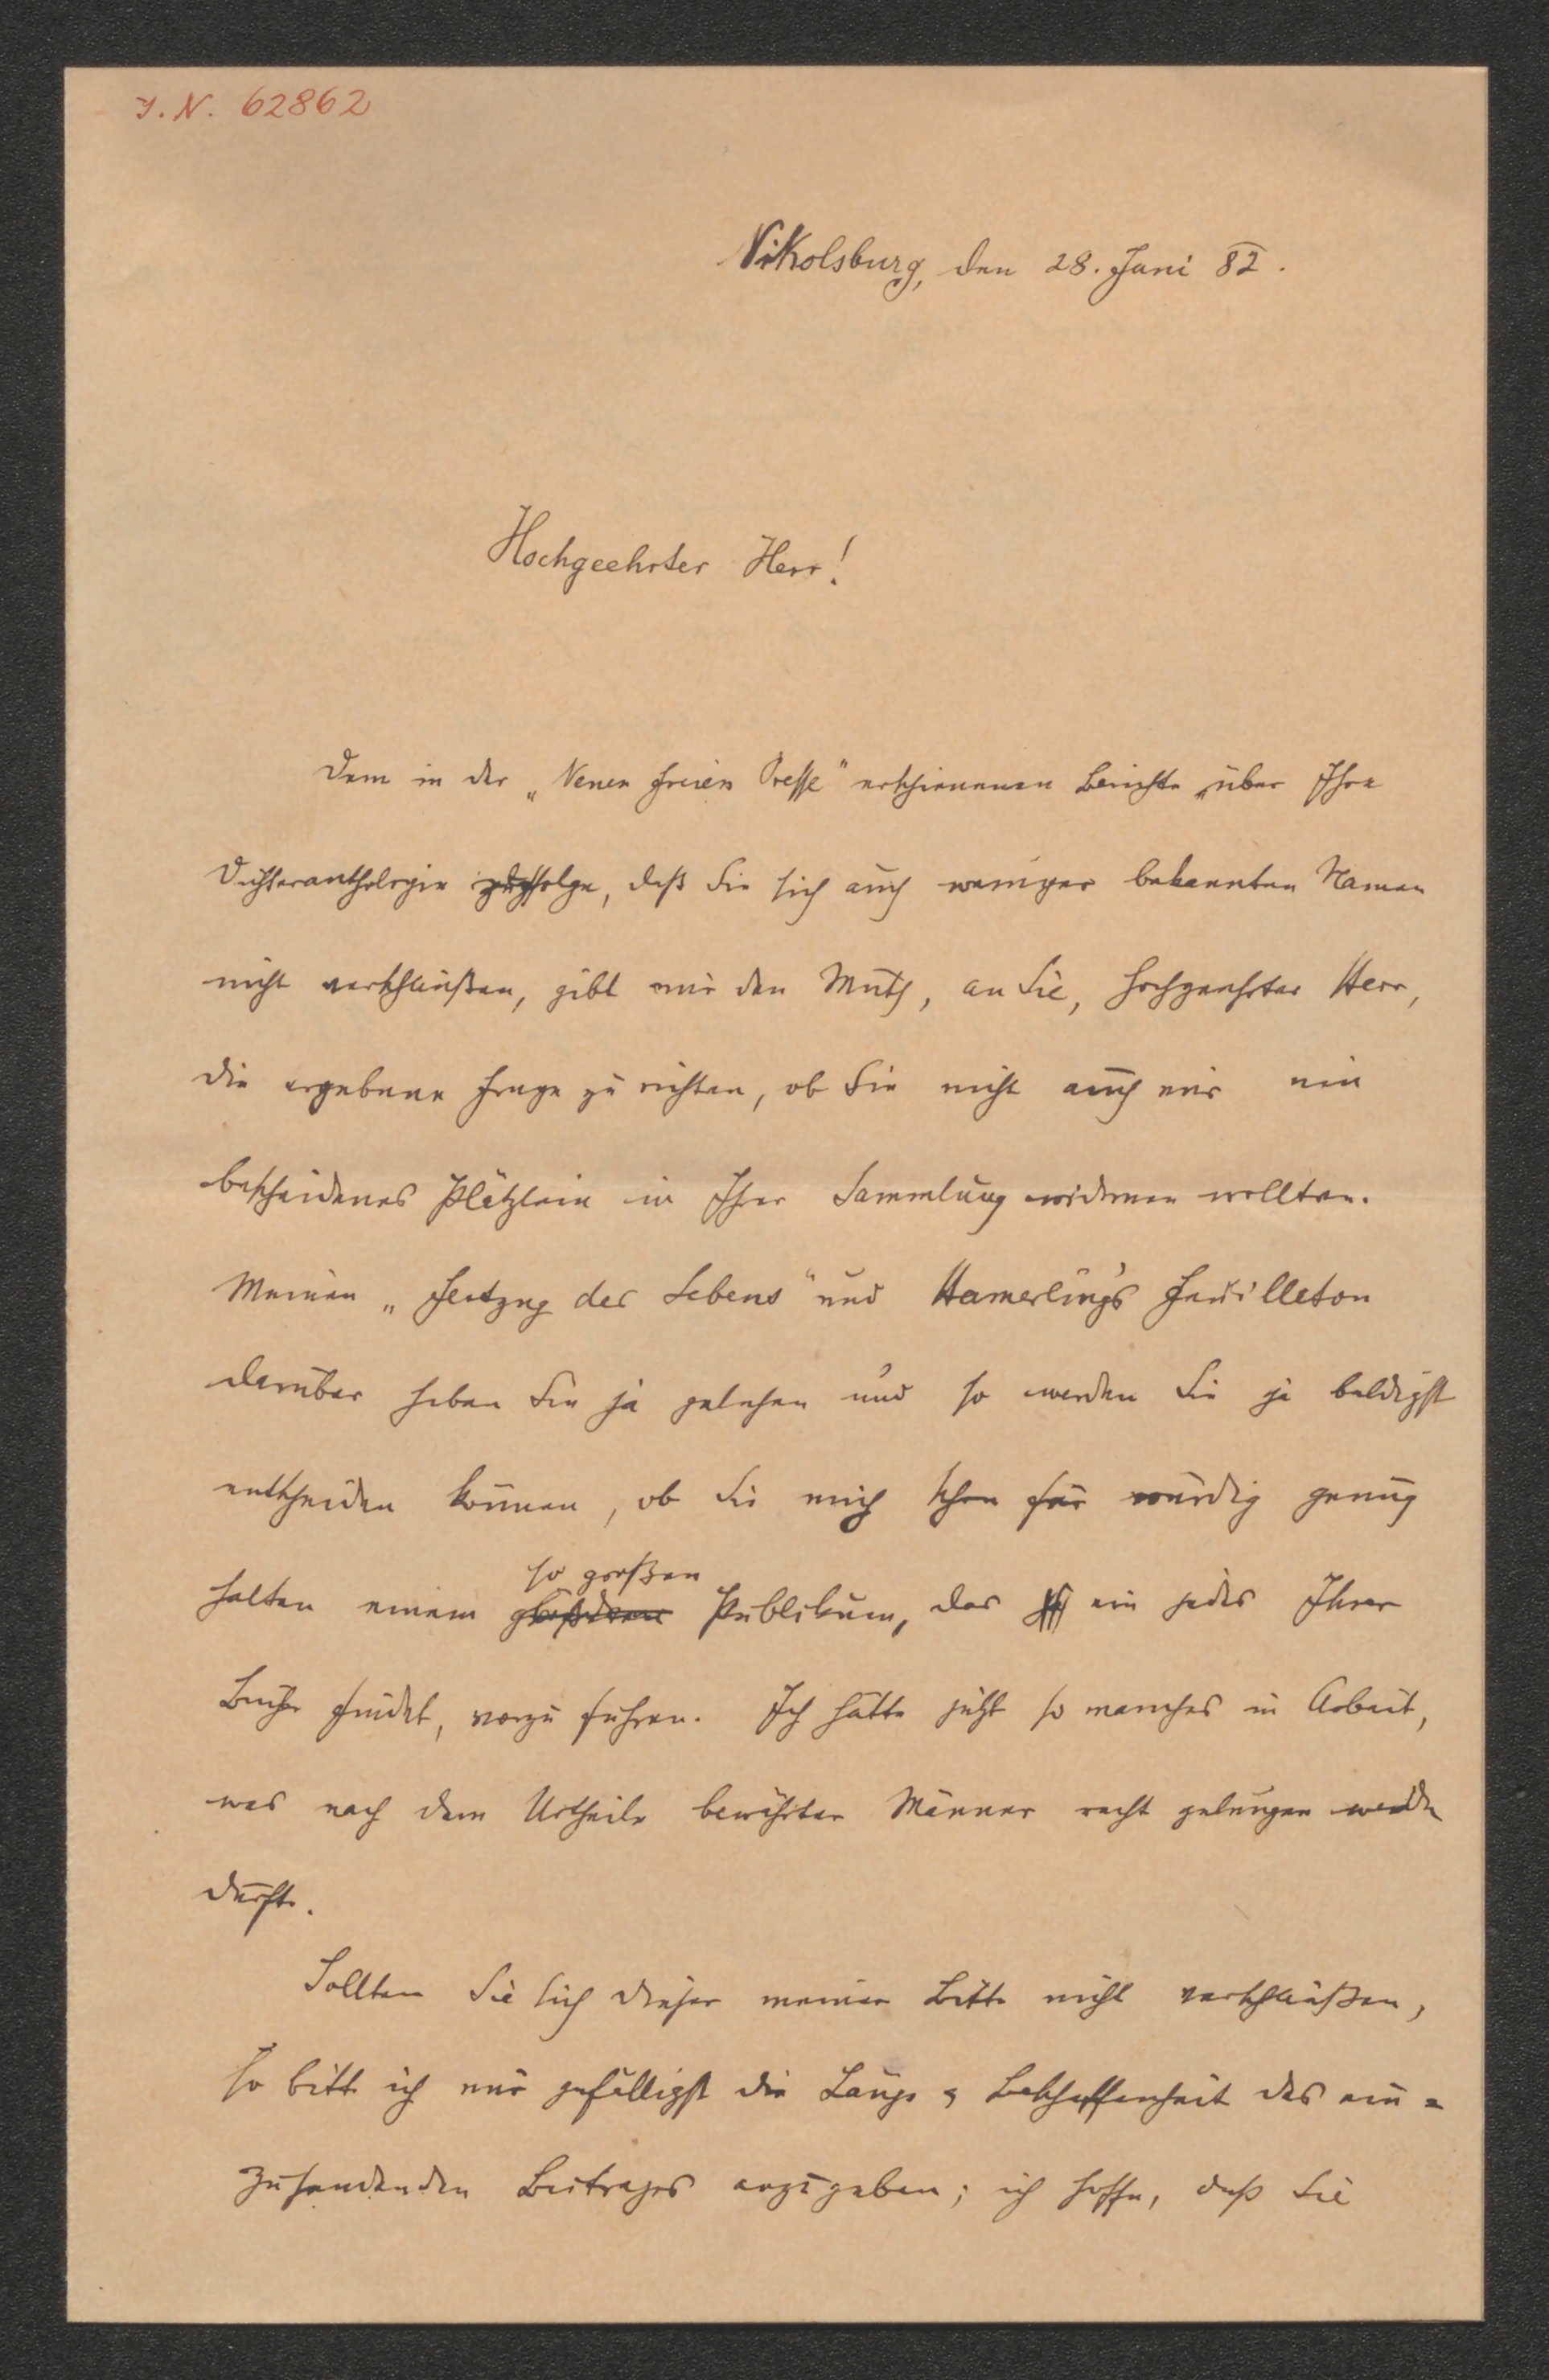 I. N. 62862
Nikolsburg, den 28. Juni 82.
Hochgeehrter Herr!
Dem in der „Neuen freien Presse" erschienenen Berichte über Ihre
Dichteranthologie zufolge, daß Sie sich auch weniger bekannten Namen
nicht verschließen, gibt mir den Muth, an Sie, hochgeehrter Herr,
die ergebene Frage zu richten, ob Sie nicht auch mir ein
bescheidenes Plätzlein in Ihrer Sammlung widmen wollten.
Meinen „Festzug des Lebens" und Hamerling's Feuilleton
darüber haben Sie ja gelesen und so werden Sie ja baldigst
entscheiden können, ob Sie mich schon für würdig genug
so großen
halten einem Publikum, das ein jedes Ihrer
Bücher findet, vorzuführen. Ich hätte jetzt so manches in Arbeit,
was nach dem Urtheile bewährter Männer recht gelungen werden
dürfte.
Sollten Sie sich dieser meiner Bitte nicht verschließen,
so bitte ich mir gefälligst die Länge & Beschaffenheit des ein=
zusendenden Beitrages anzugeben; ich hoffe, daß Sie